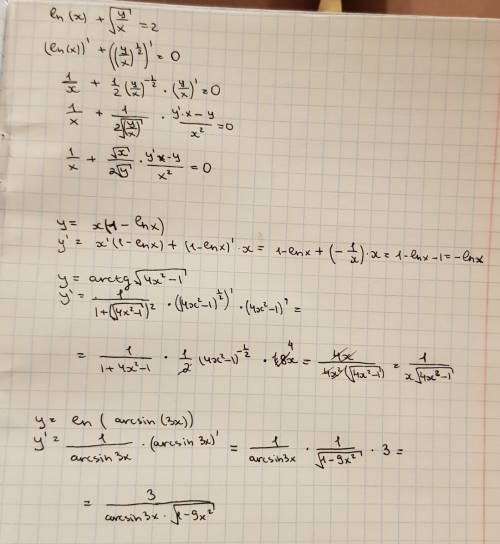 ln(x) + √(y/x) = 2
(ln(x))' + ((y/x)^(1/2))' = 0
1/x + 1/2 (y/x)^(-1/2) · (y/x)' = 0
1/x + 1/(2√(y/x)) · (y'·x-y)/x² = 0
1/x + √x/(2√y) · (y'x-y)/x² = 0
y = x(1-lnx)
y' = x'(1-lnx) + (1-lnx)'·x = 1-lnx + (-1/x)·x = 1-lnx-1 = -lnx
y = arctg√(4x²-1)
y' = 1/(1+(√(4x²-1))²) · ((4x²-1)^(1/2))' · (4x²-1)' =
= 1/(1+4x²-1) · 1/2 (4x²-1)^(-1/2) · 8x 4 = 4x/(4x²(√(4x²-1))) = 1/(x√(4x²-1))
y = ln(arcsin(3x))
y' = 1/(arcsin3x) · (arcsin3x)' = 1/(arcsin3x) · 1/√(1-9x²) · 3 =
= 3/(arcsin3x · √(1-9x²))